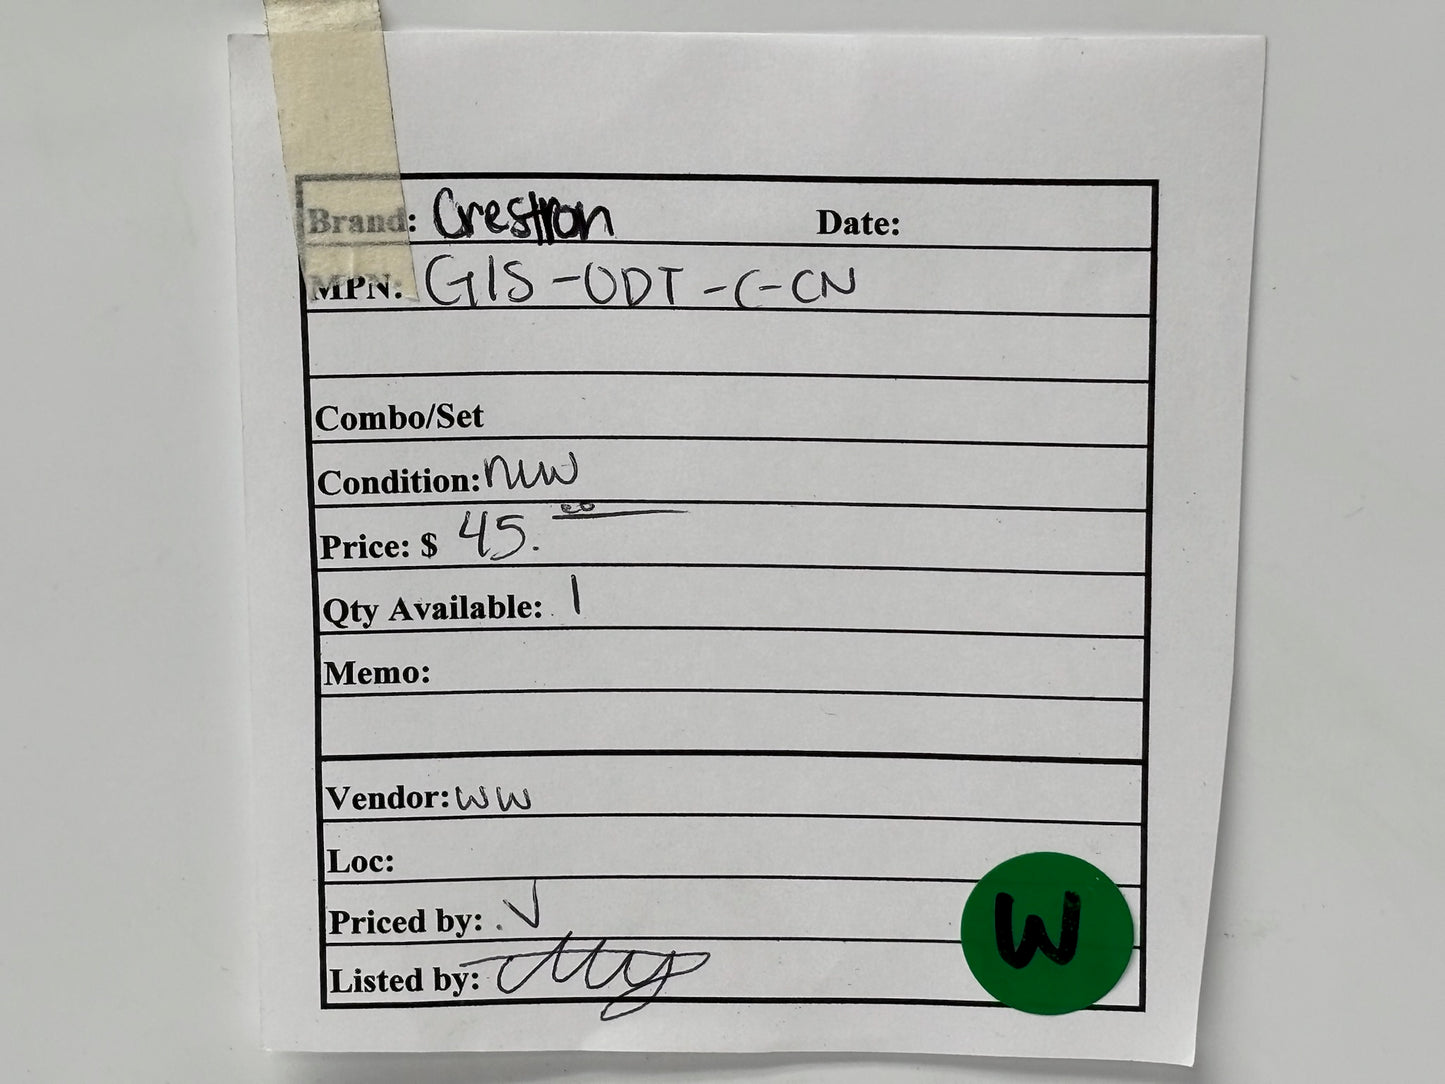 Brand: Crestron Date:
MPN: GLS-ODT-C-CN
Combo/Set
Condition: new
Price: $ 45.00
Qty Available: 1
Memo:
Vendor: WW
Loc:
Priced by: V
Listed by:
W